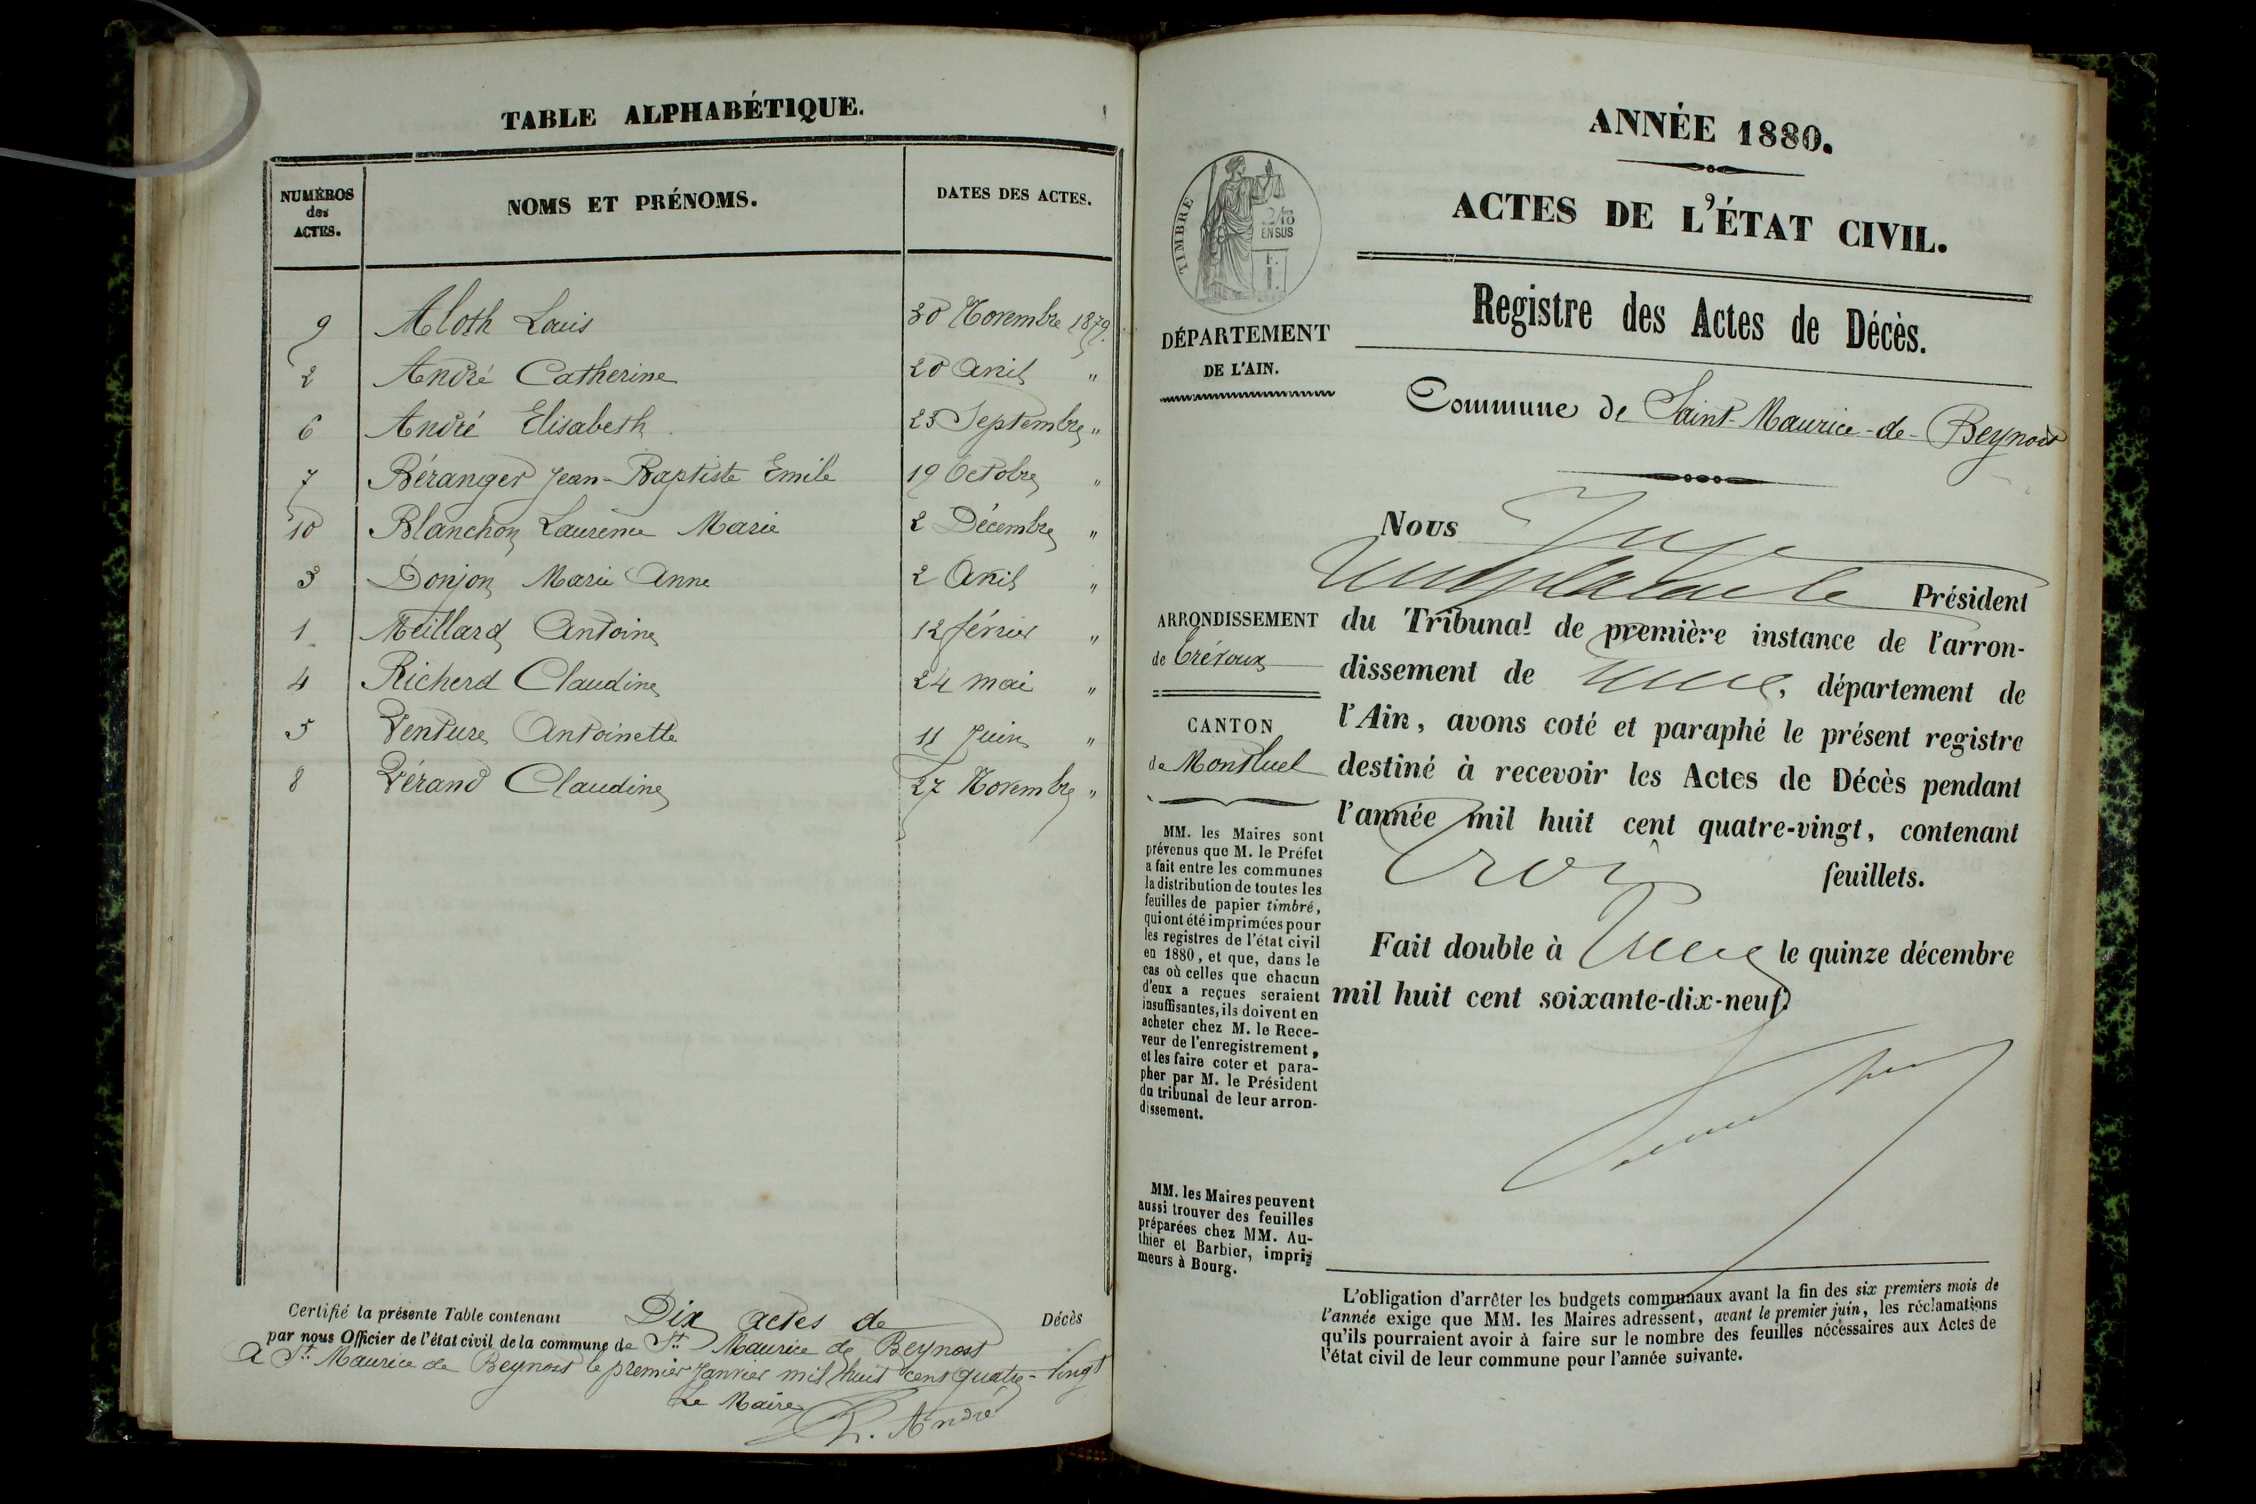 TABLE ALPHABÉTIQUE.
NUMÉROS des ACTES.
NOMS ET PRÉNOMS.
DATES DES ACTES.
9 Aloth Louis 30 Novembre 1879.
2 André Catherine 20 Avril "
6 André Elisabeth 23 Septembre "
7 Béranger Jean-Baptiste Emile 19 Octobre "
10 Blanchon Laurence Marie 2 Décembre "
3 Donjon Marie Anne 2 Avril "
1 Meillard Antoine 12 février "
4 Richerd Claudine 24 mai "
5 Venture Antoinette 11 Juin "
8 Vérand Claudine 27 Novembre "
Certifié la présente Table contenant Dix actes de Décès
par nous Officier de l'état civil de la commune de St. Maurice de Beynost
A St. Maurice de Beynost le premier Janvier mil huit cent quatre-vingt
Le Maire
André
ANNÉE 1880.
ACTES DE L'ÉTAT CIVIL.
TIMBRE
2/10
EN SUS
Registre des Actes de Décès.
DÉPARTEMENT
DE L'AIN.
Commune de Saint-Maurice-de-Beynost
Nous Juge
Président
ARRONDISSEMENT
de Trévoux
CANTON
de Montluel
du Tribunal de première instance de l'arron-
dissement de , département de
l'Ain, avons coté et paraphé le présent registre
destiné à recevoir les Actes de Décès pendant
l'année mil huit cent quatre-vingt, contenant
Trois feuillets.
Fait double à le quinze décembre
mil huit cent soixante-dix-neuf
MM. les Maires sont
prévenus que M. le Préfet
a fait entre les communes
la distribution de toutes les
feuilles de papier timbré,
qui ont été imprimées pour
les registres de l'état civil
en 1880, et que, dans le
cas où celles que chacun
d'eux a reçues seraient
insuffisantes, ils doivent en
acheter chez M. le Rece-
veur de l'enregistrement,
et les faire coter et para-
pher par M. le Président
du tribunal de leur arron-
dissement.
MM. les Maires peuvent
aussi trouver des feuilles
préparées chez MM. Au-
thier et Barbier, impri-
meurs à Bourg.
L'obligation d'arrêter les budgets communaux avant la fin des six premiers mois de
l'année exige que MM. les Maires adressent, avant le premier juin, les réclamations
qu'ils pourraient avoir à faire sur le nombre des feuilles nécessaires aux Actes de
l'état civil de leur commune pour l'année suivante.